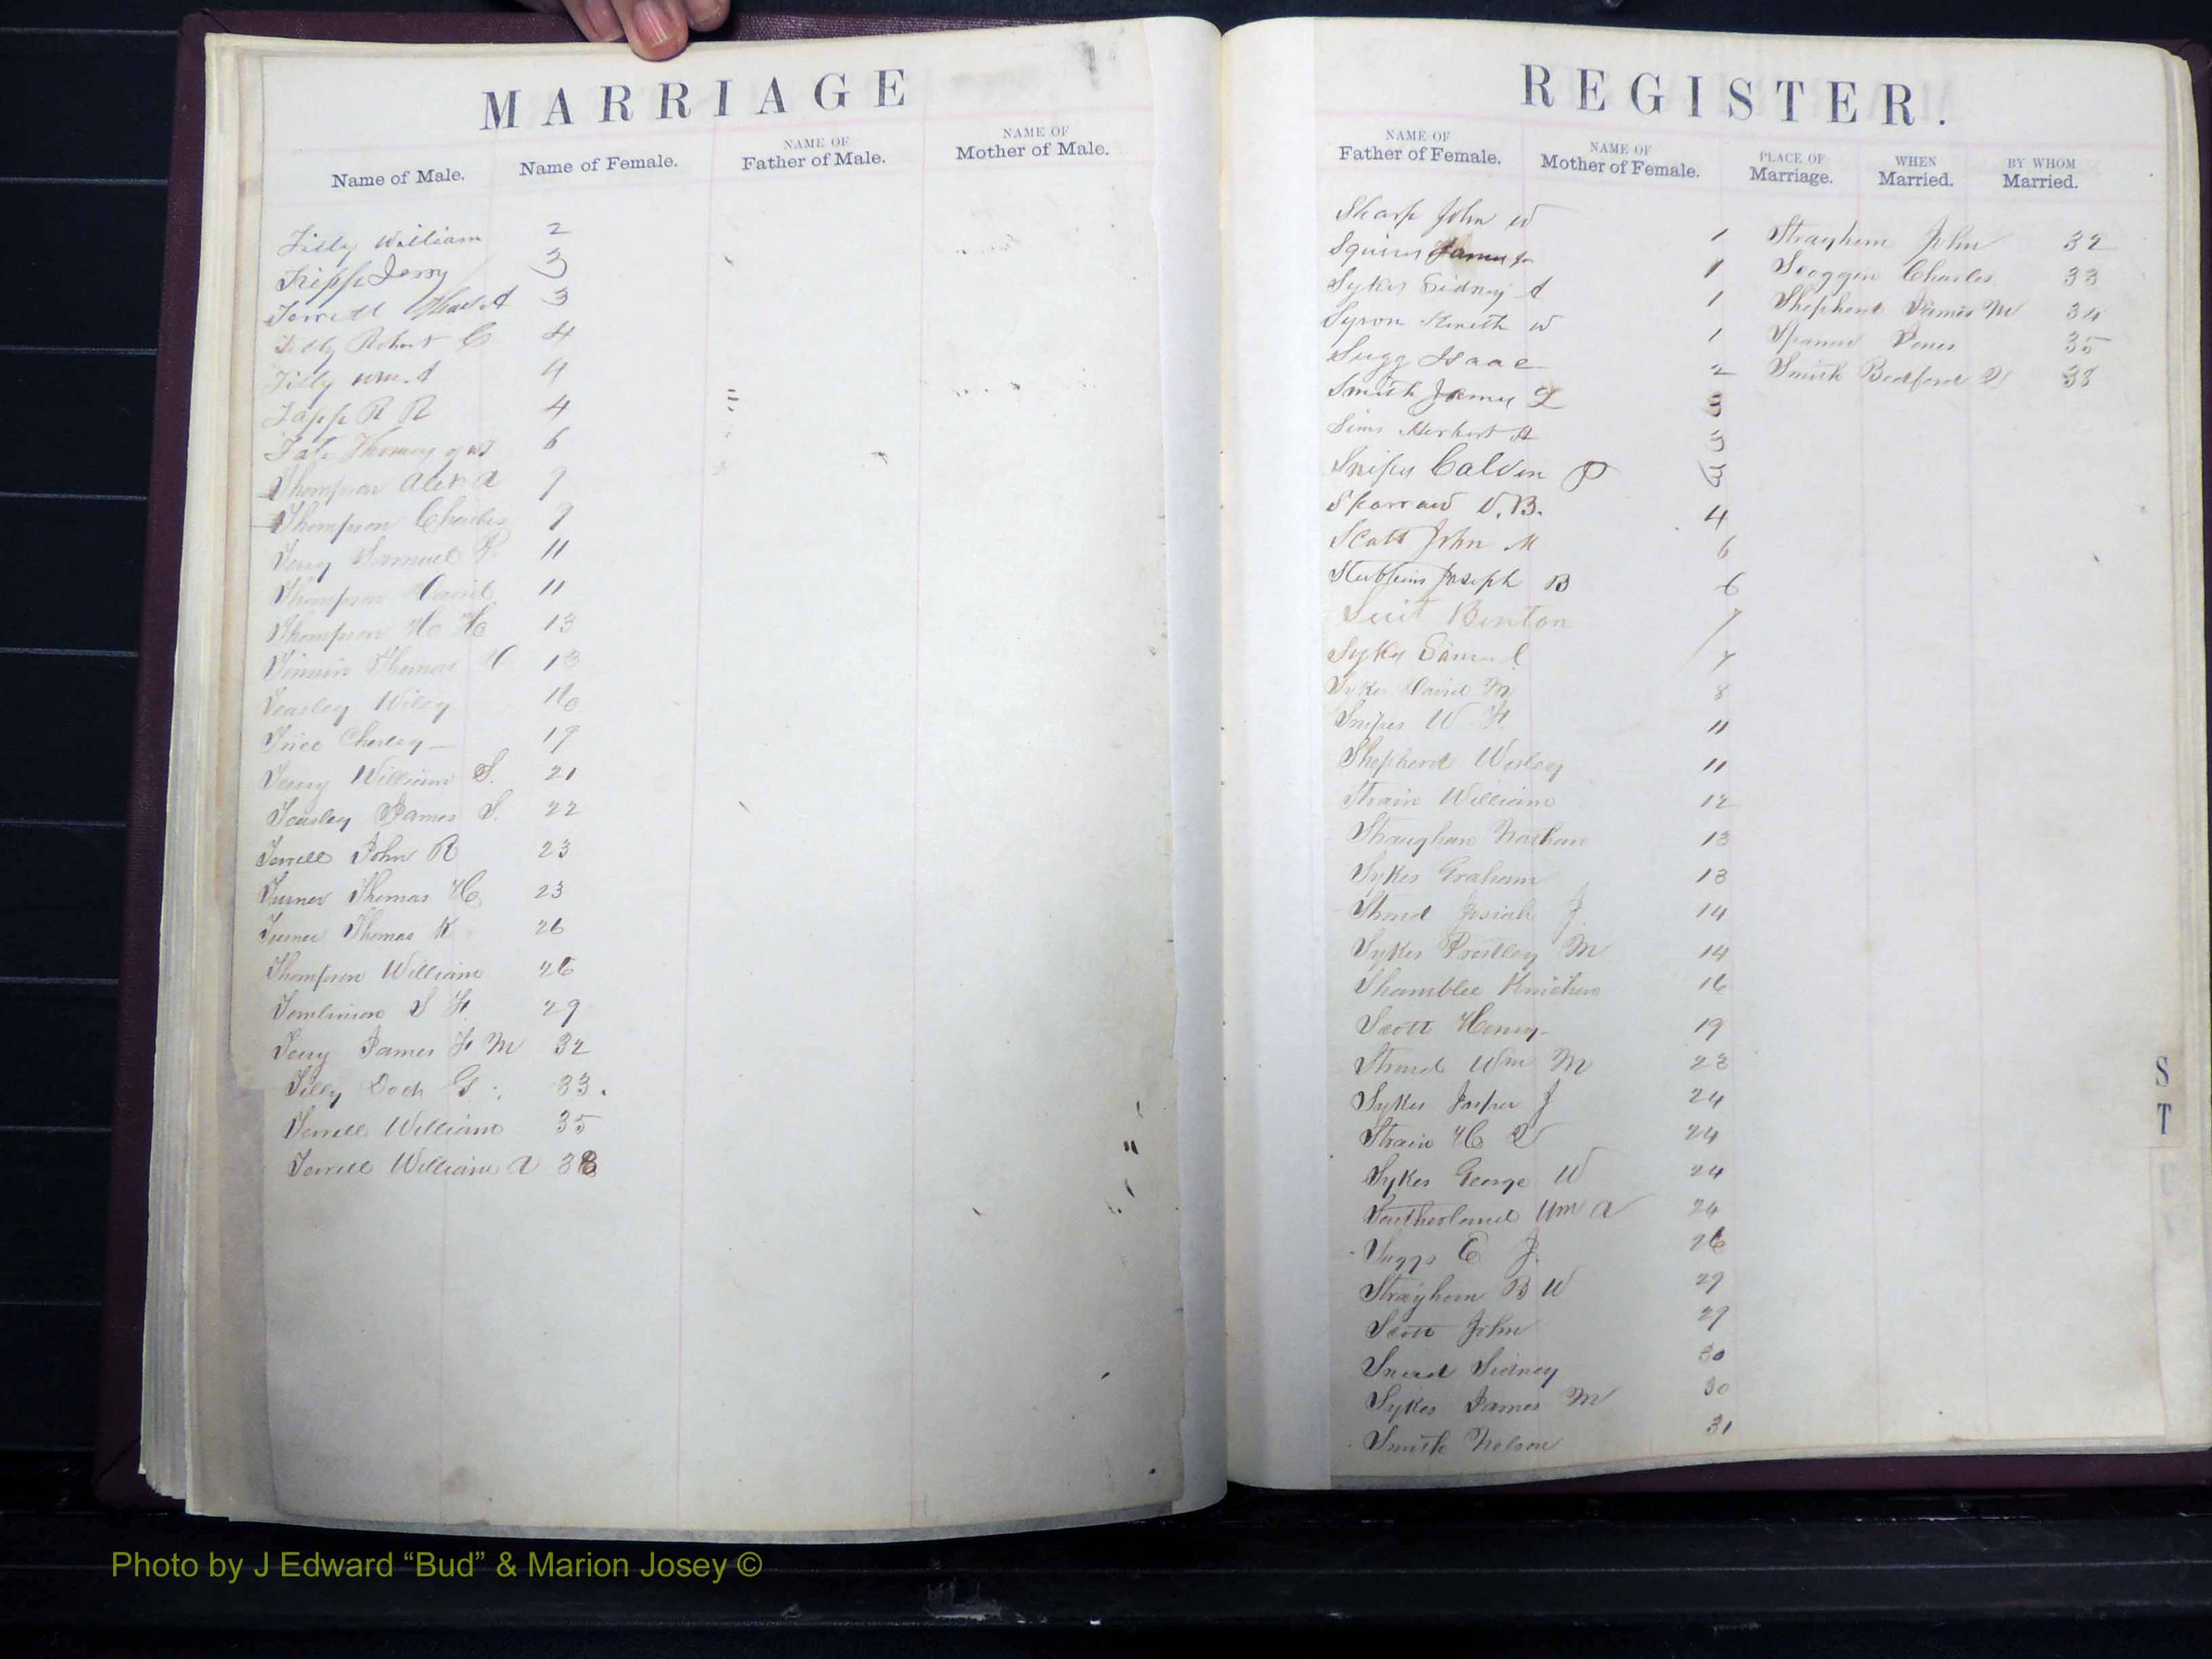 MARRIAGE
Name of Male.
Name of Female.
NAME OF
Father of Male.
NAME OF
Mother of Male.
Tilly William 2
Tripp Jerry 3
Terrell 3
Tilly Robert C 4
Tilly Wm. A 4
Tapp R R 4
Tate Thomas 6
Thompson Alex A 7
Thompson Charles 9
Terry Samuel 11
Thompson David 11
Thompson H H 13
Tinnin Thomas 13
Teasley Wiley 16
Trice Charley 19
Terry William S. 21
Teasley James S. 22
Terrell John R 23
Turner Thomas H 23
Turner Thomas K 26
Thompson William 26
Tomlinson S H 29
Terry James F M 32
Tilly Doch G 33.
Terrell William 35
Terrell William A 38
REGISTER.
NAME OF
Father of Female.
NAME OF
Mother of Female.
PLACE OF
Marriage.
WHEN
Married.
BY WHOM
Married.
Sharp John W 1
Squires James 1
Sykes Sidney A 1
Syron W 1
Sugg Isaac 2
Smith James L 3
Sims Herbert H 3
Snipes Calvin P 3
Sparrow V.B. 4
Scott John M 6
Stubbins Joseph B 6
Suit Benton 7
Sykes Samuel 7
Sykes David M 8
Snipes W H 11
Shepherd Wesley 11
Strain William 12
Straughan Nathan 13
Sykes Graham 13
Stroud Josiah J. 14
Sykes Prestley M 14
Shamblee 16
Scott Henry 19
Stroud Wm M 23
Sykes Jasper J 24
Strain H 24
Sykes George W 24
Southerland Wm A 24
Suggs E J. 26
Strayhorn B W 29
Scott John 29
Snead Sidney 30
Sykes James M 30
Smith Nelson 31
Strayhorn John 32
Scoggin Charles 33
Shepherd James M 34
Jones 35
Smith Bedford 38
S
T
Photo by J Edward “Bud” & Marion Josey ©